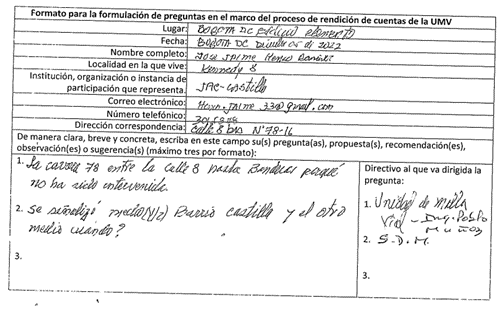 Formato para la formulación de preguntas en el marco del proceso de rendición de cuentas de la UMV
Lugar: BOGOTA DC
Fecha: BOGOTA DC de 2022
Nombre completo: JOSE JAIME
Localidad en la que vive: Kennedy 8
Institución, organización o instancia de
participación que representa. JAC - castilla
Correo electrónico:
Número telefónico:
Dirección correspondencia: Calle 8 bis N° 78-16
De manera clara, breve y concreta, escriba en este campo su(s) pregunta(as), propuesta(s), recomendación(es),
observación(es) o sugerencia(s) (máximo tres por formato):
1. La carrera 78 entre la calle 8 hasta porqué
no ha sido intervenida.
2. Se señalizó medio (1/2) Barrio castilla y el otro
medio cuando?
3.
Directivo al que va dirigida la
pregunta:
1. Unidad de malla
Vial - Ing. Pablo
Muñoz
2. S.D.M.
3.